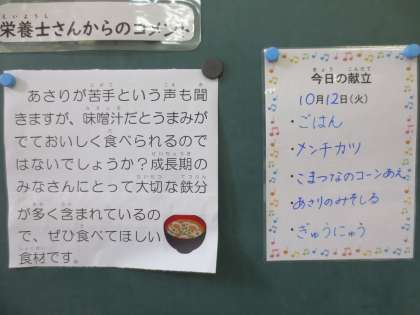 栄養士さんからのコメント
あさりが苦手という声も聞
きますが、味噌汁だとうまみが
でておいしく食べられるので
はないでしょうか?成長期の
みなさんにとって大切な鉄分
が多く含まれているの
で、ぜひ食べてほしい
食材です。
今日の献立
10月12日(火)
・ごはん
・メンチカツ
・こまつなのコーンあえ
・あさりのみそしる
・ぎゅうにゅう